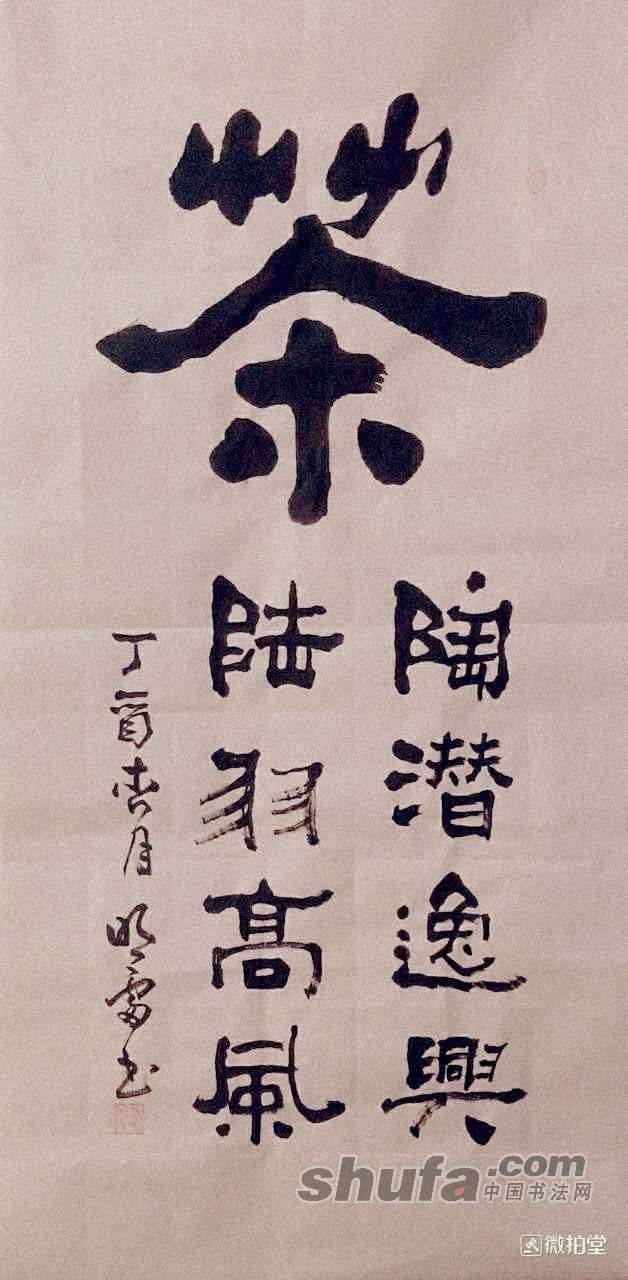 茶
陶潜逸興
陸羽高風
丁酉杏月明雷书
shufa.com
中国书法网
微拍堂